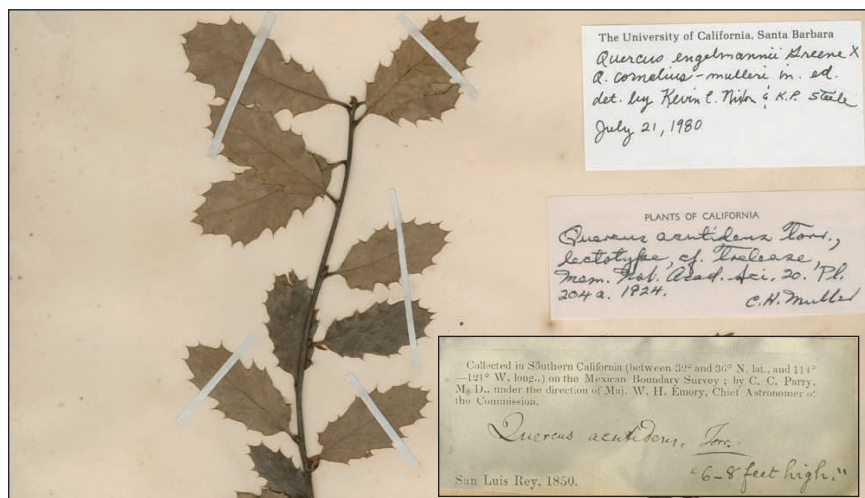 The University of California, Santa Barbara
Quercus engelmannii Greene X
Q. cornelius-mulleri in. ed.
det. by Kevin C. Nixon & K.P. Steele
July 21, 1980
PLANTS OF CALIFORNIA
Quercus acutidens Torr.,
lectotype, cf. Trelease,
Mem. Nat. Acad. Sci. 20. Pl.
204a. 1924.
C.H. Muller
Collected in Southern California (between 32° and 36° N. lat., and 114°
—121° W. long.,) on the Mexican Boundary Survey ; by C. C. Parry,
M. D., under the direction of Maj. W. H. Emory, Chief Astronomer of
the Commission.
Quercus acutidens, Torr.
"6–8 feet high."
San Luis Rey, 1850.